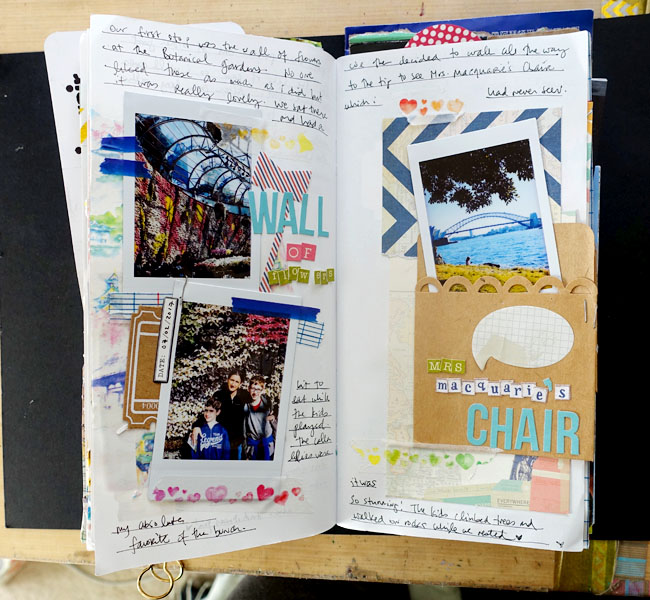 Our first stop was the wall of flowers
at the Botanical gardens. No one
liked these as much as i did but
it was really lovely. We sat there
and had a
WALL
OF
flowers
DATE: 07.02.2017
bit to
eat while
the kids
played
The calla
lilies were
my absolute
favorite of the bunch.
we then decided to walk all the way
to the tip to see Mrs. Macquarie's Chair
which i
had never seen.
MRS
macquarie's
CHAIR
EVERYWHERE
it was
so stunning! The kids climbed trees and
walked on rocks while we rested